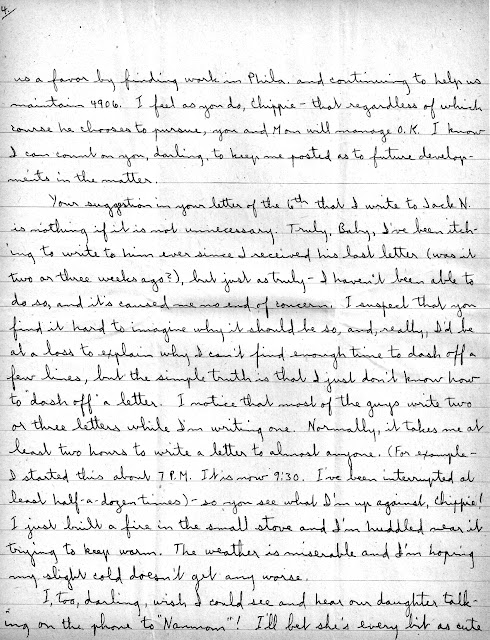 4.
us a favor by finding work in Phila. and continuing to help us
maintain 4906. I feel as you do, Chippie - that regardless of which
course he chooses to pursue, you and Mom will manage O.K. I know
I can count on you, darling, to keep me posted as to future develop-
ments in the matter.
Your suggestion in your letter of the 6th that I write to Jack N.
is nothing if it is not unnecessary. Truly, Baby, I've been itch-
ing to write to him ever since I received his last letter (was it
two or three weeks ago?), but just as truly - I haven't been able to
do so, and it's caused me no end of concern. I suspect that you
find it hard to imagine why it should be so, and, really, I'd be
at a loss to explain why I can't find enough time to dash off a
few lines, but the simple truth is that I just don't know how
to "dash off" a letter. I notice that most of the guys write two
or three letters while I'm writing one. Normally, it takes me at
least two hours to write a letter to almost anyone. (For example -
I started this about 7 P.M. It is now 9:30. I've been interrupted at
least half-a-dozen times) - so you see what I'm up against, Chippie!
I just built a fire in the small stove and I'm huddled near it
trying to keep warm. The weather is miserable and I'm hoping
my slight cold doesn't get any worse.
I, too, darling, wish I could see and hear our daughter talk-
ing on the phone to "Nanmom"! I'll bet she's every bit as cute